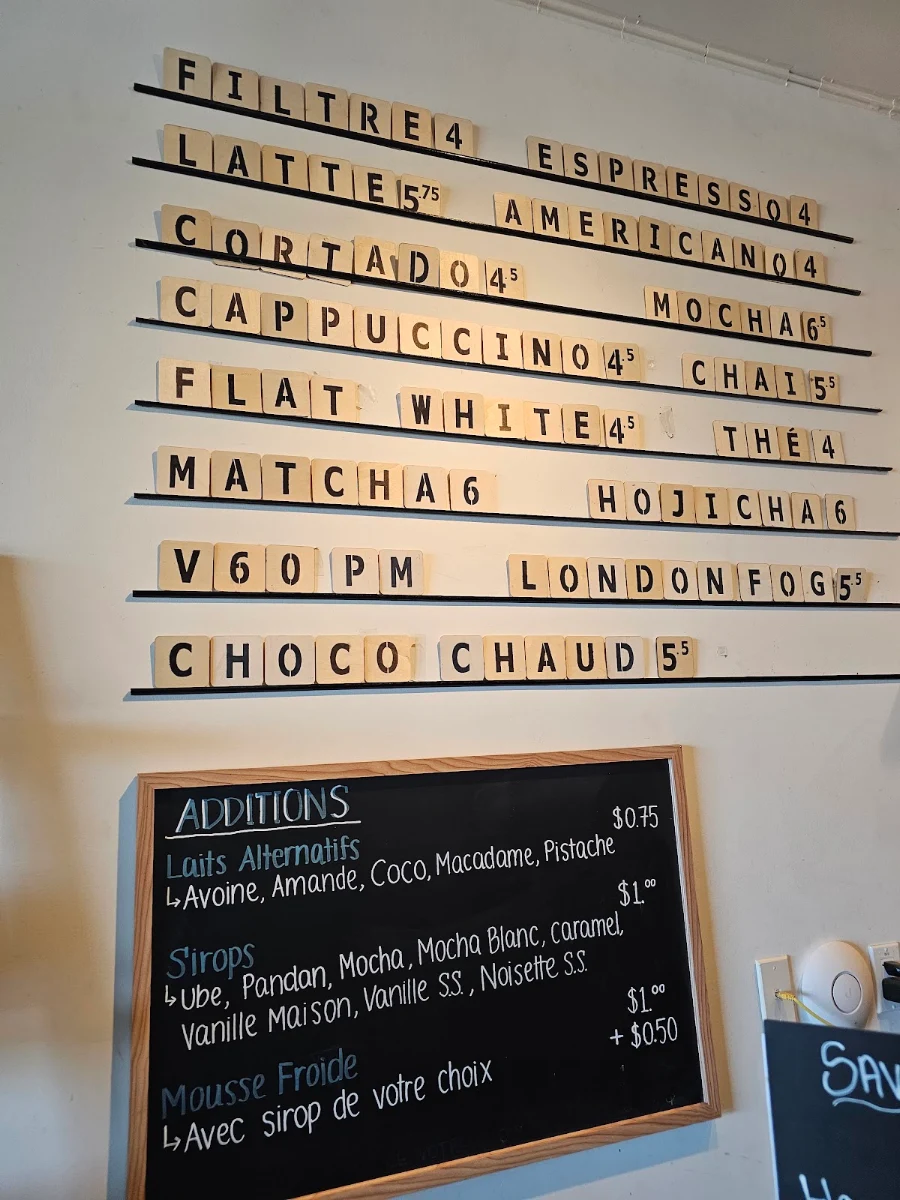 FILTRE 4 ESPRESSO 4
LATTE 5.75 AMERICANO 4
CORTADO 4.5 MOCHA 6.5
CAPPUCCINO 4.5 CHAI 5.5
FLAT WHITE 4.5 THÉ 4
MATCHA 6 HOJICHA 6
V60 PM LONDON FOG 5.5
CHOCO CHAUD 5.5
ADDITIONS
Laits Alternatifs $0.75
↳Avoine, Amande, Coco, Macadame, Pistache
Sirops $1.00
↳Ube, Pandan, Mocha, Mocha Blanc, Caramel,
Vanille Maison, Vanille S.S., Noisette S.S.
Mousse Froide $1.00
↳Avec sirop de votre choix + $0.50
SAV